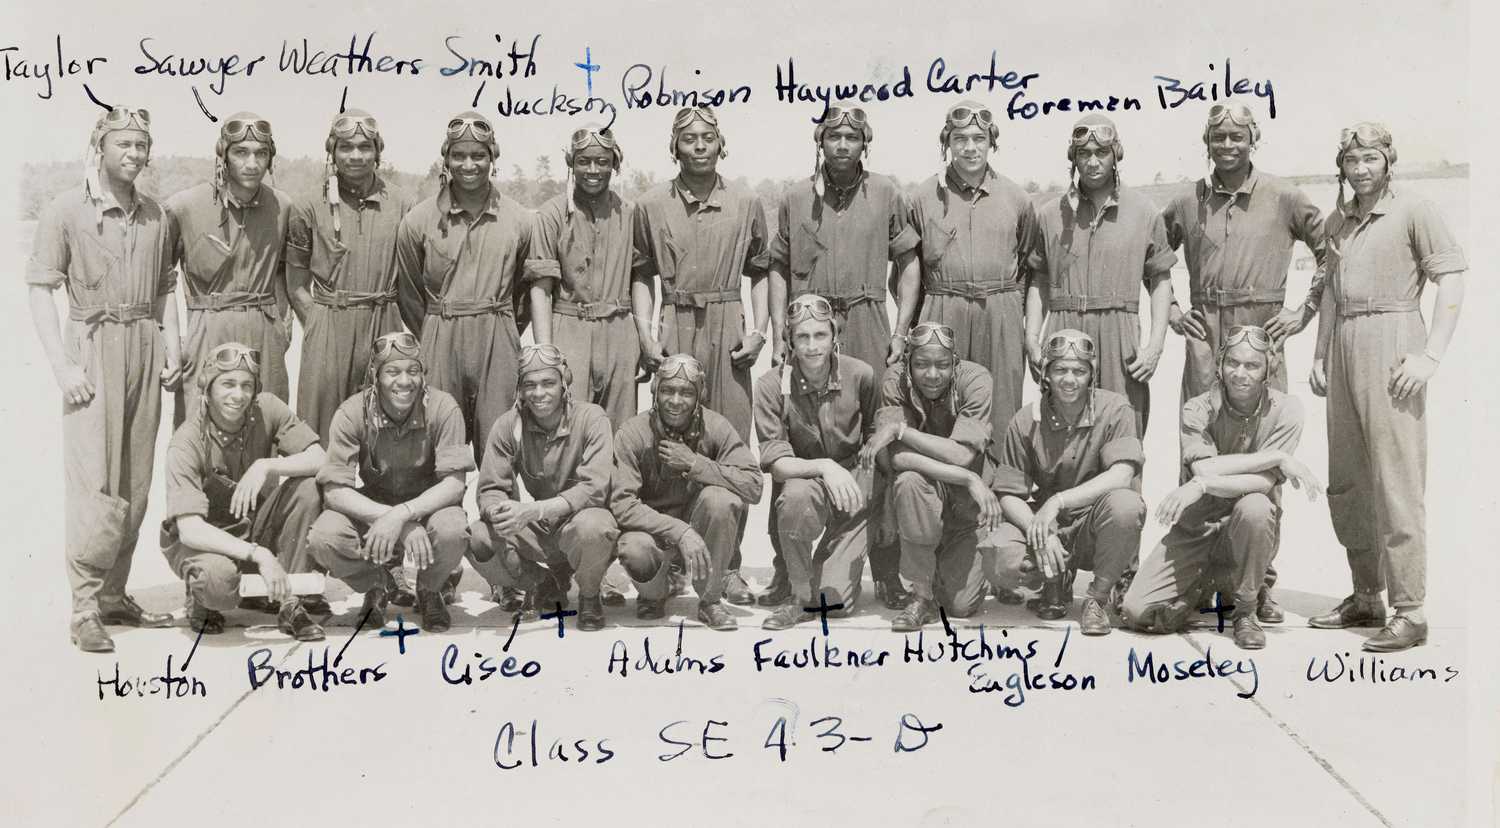 Taylor Sawyer Weathers Smith Jackson Robinson Haywood Carter Foreman Bailey
Houston Brothers Cisco Adams Faulkner Hutchins Eagleson Moseley Williams
Class SE 43-D